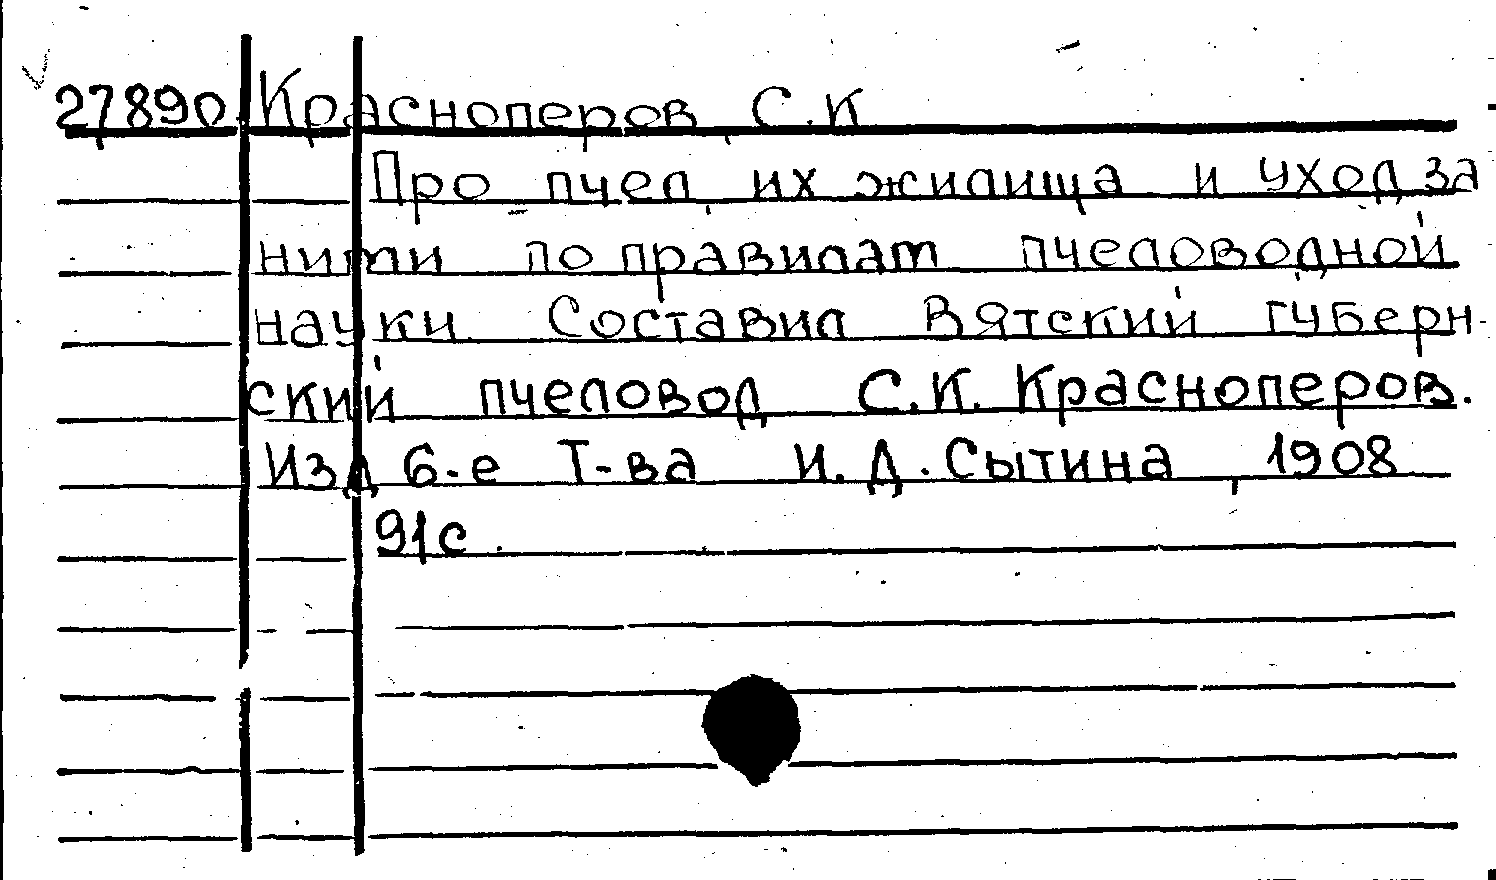 27890 Красноперов С.К
Про пчел, их жилища и уход за
ними по правилам пчеловодной
науки Составил Вятский губерн-
ский пчеловод С.К. Красноперов.
Изд 6-е Т-ва И.Д.Сытина, 1908
91с.